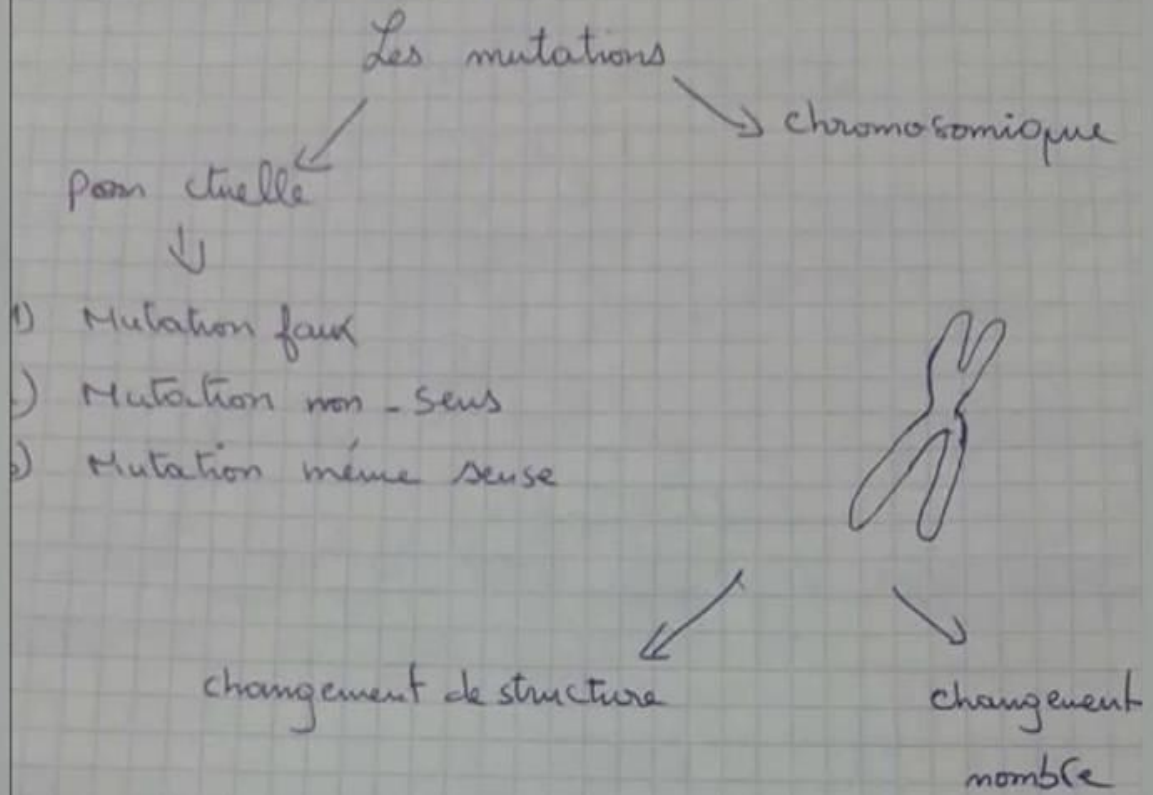 Les mutations
chromosomique
ponctuelle
1) Mutation faux
) Mutation non-sens
) Mutation même sense
changement de structure
changement
nombre